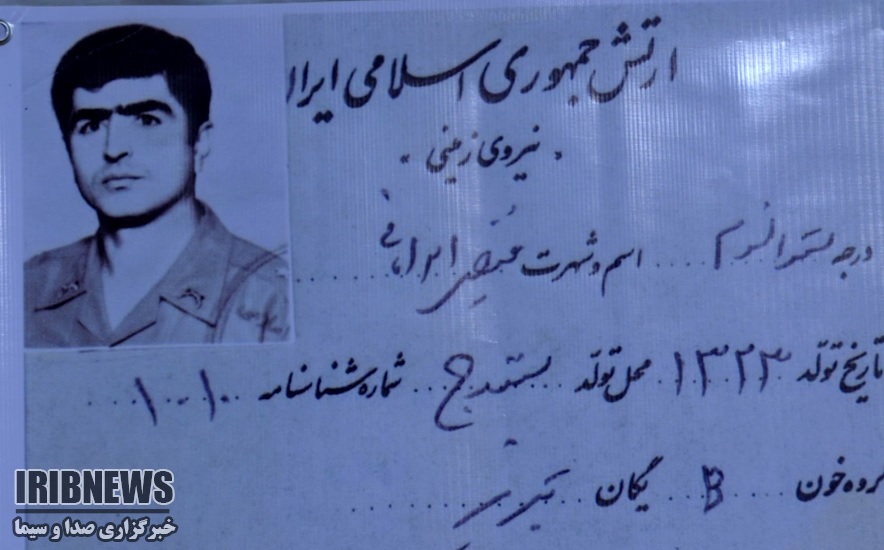 ارتش جمهوری اسلامی ایرا
نیروی زمینی
درجه ستوانسوم اسم و شهرت ایرانی
تاریخ تولد ۱۳۲۳ محل تولد شماره شناسنامه ۱۰۱
گروه خون B یگان
IRIBNEWS
خبرگزاری صدا و سیما